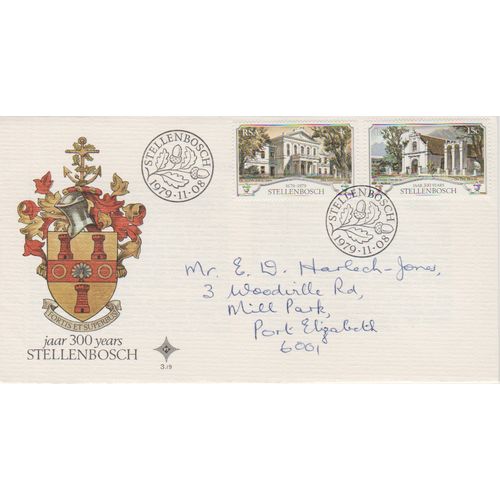 STELLENBOSCH
1979·11·08
RSA
1679-1979
STELLENBOSCH
15c
JAAR 300 YEARS
STELLENBOSCH
STELLENBOSCH
1979·11·08
Mr. E. D. Harlech-Jones,
3 Woodville Rd,
Mill Park,
Port Elizabeth
6001
FORTIS ET SUPERBUS
jaar 300 years
STELLENBOSCH
3.19